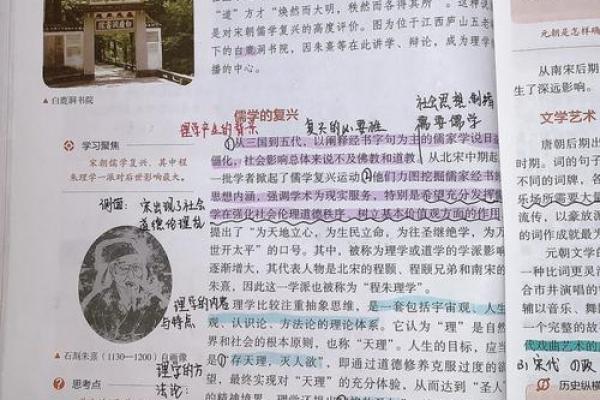 "道"方才"焕然而大明,秩然而各得其所"。这种说
是对宋朝儒学复兴的高度评价。图为位于江西庐山五老
下的白鹿洞书院,因朱熹等在此讲学、辩论,成为理学
播的中心。
白鹿洞书院
▲白鹿洞书院
儒学的复兴
理学产生的背景
复兴的必要性
社会思想
需要儒学
学习聚焦
宋朝儒学复兴,其中程
朱理学一派对后世影响最大。
①从三国到五代,以阐释经书字句为主的儒家学说日益
僵化,社会影响总体来说不及佛教和道教。从北宋中期起,
一批学者掀起了儒学复兴运动②他们力图挖掘儒家经书的
思想内涵,强调学术为现实服务,特别是希望充分发挥儒
学在强化社会伦理道德秩序、树立基本价值观方面的作用,
提出了"为天地立心,为生民立命,为往圣继绝学,为万
世开太平"的口号。其中,被称为理学或道学的学派影响
逐渐增大,其代表人物是北宋的程颢、程颐兄弟和南宋的
朱熹,因此这一学派也被称为"程朱理学"。
侧面:宋出现了社会
道德伦理
理学的内容
与特点
理学比较注重抽象思维,是一套包括宇宙观、人生
观、认识论、方法论的理论体系。它认为"理"是自然
界和社会的根本原则,也称"天理"。人生的目标,应当
是①"存天理,灭人欲",即通过道德修养克服过度的欲
望,最终实现对"天理"的充分体验,从而达到"圣人"
的精神境界。理学还提出
▲石刻朱熹(1130—1200)自画像
思考点
理学的方
法论:
元朝是怎样确
从南宋后期
生了深远影响。
文学艺术
唐朝后期出
时期。词的句子
不同的词牌,各
乐场所需要大量
流传,以豪放派
的词作成就最为
元朝文学的
一种比词更灵活
合市井演唱的
辅以音乐、舞
一个完整的故
代戏曲艺术的
3)宋代の政
历史纵横